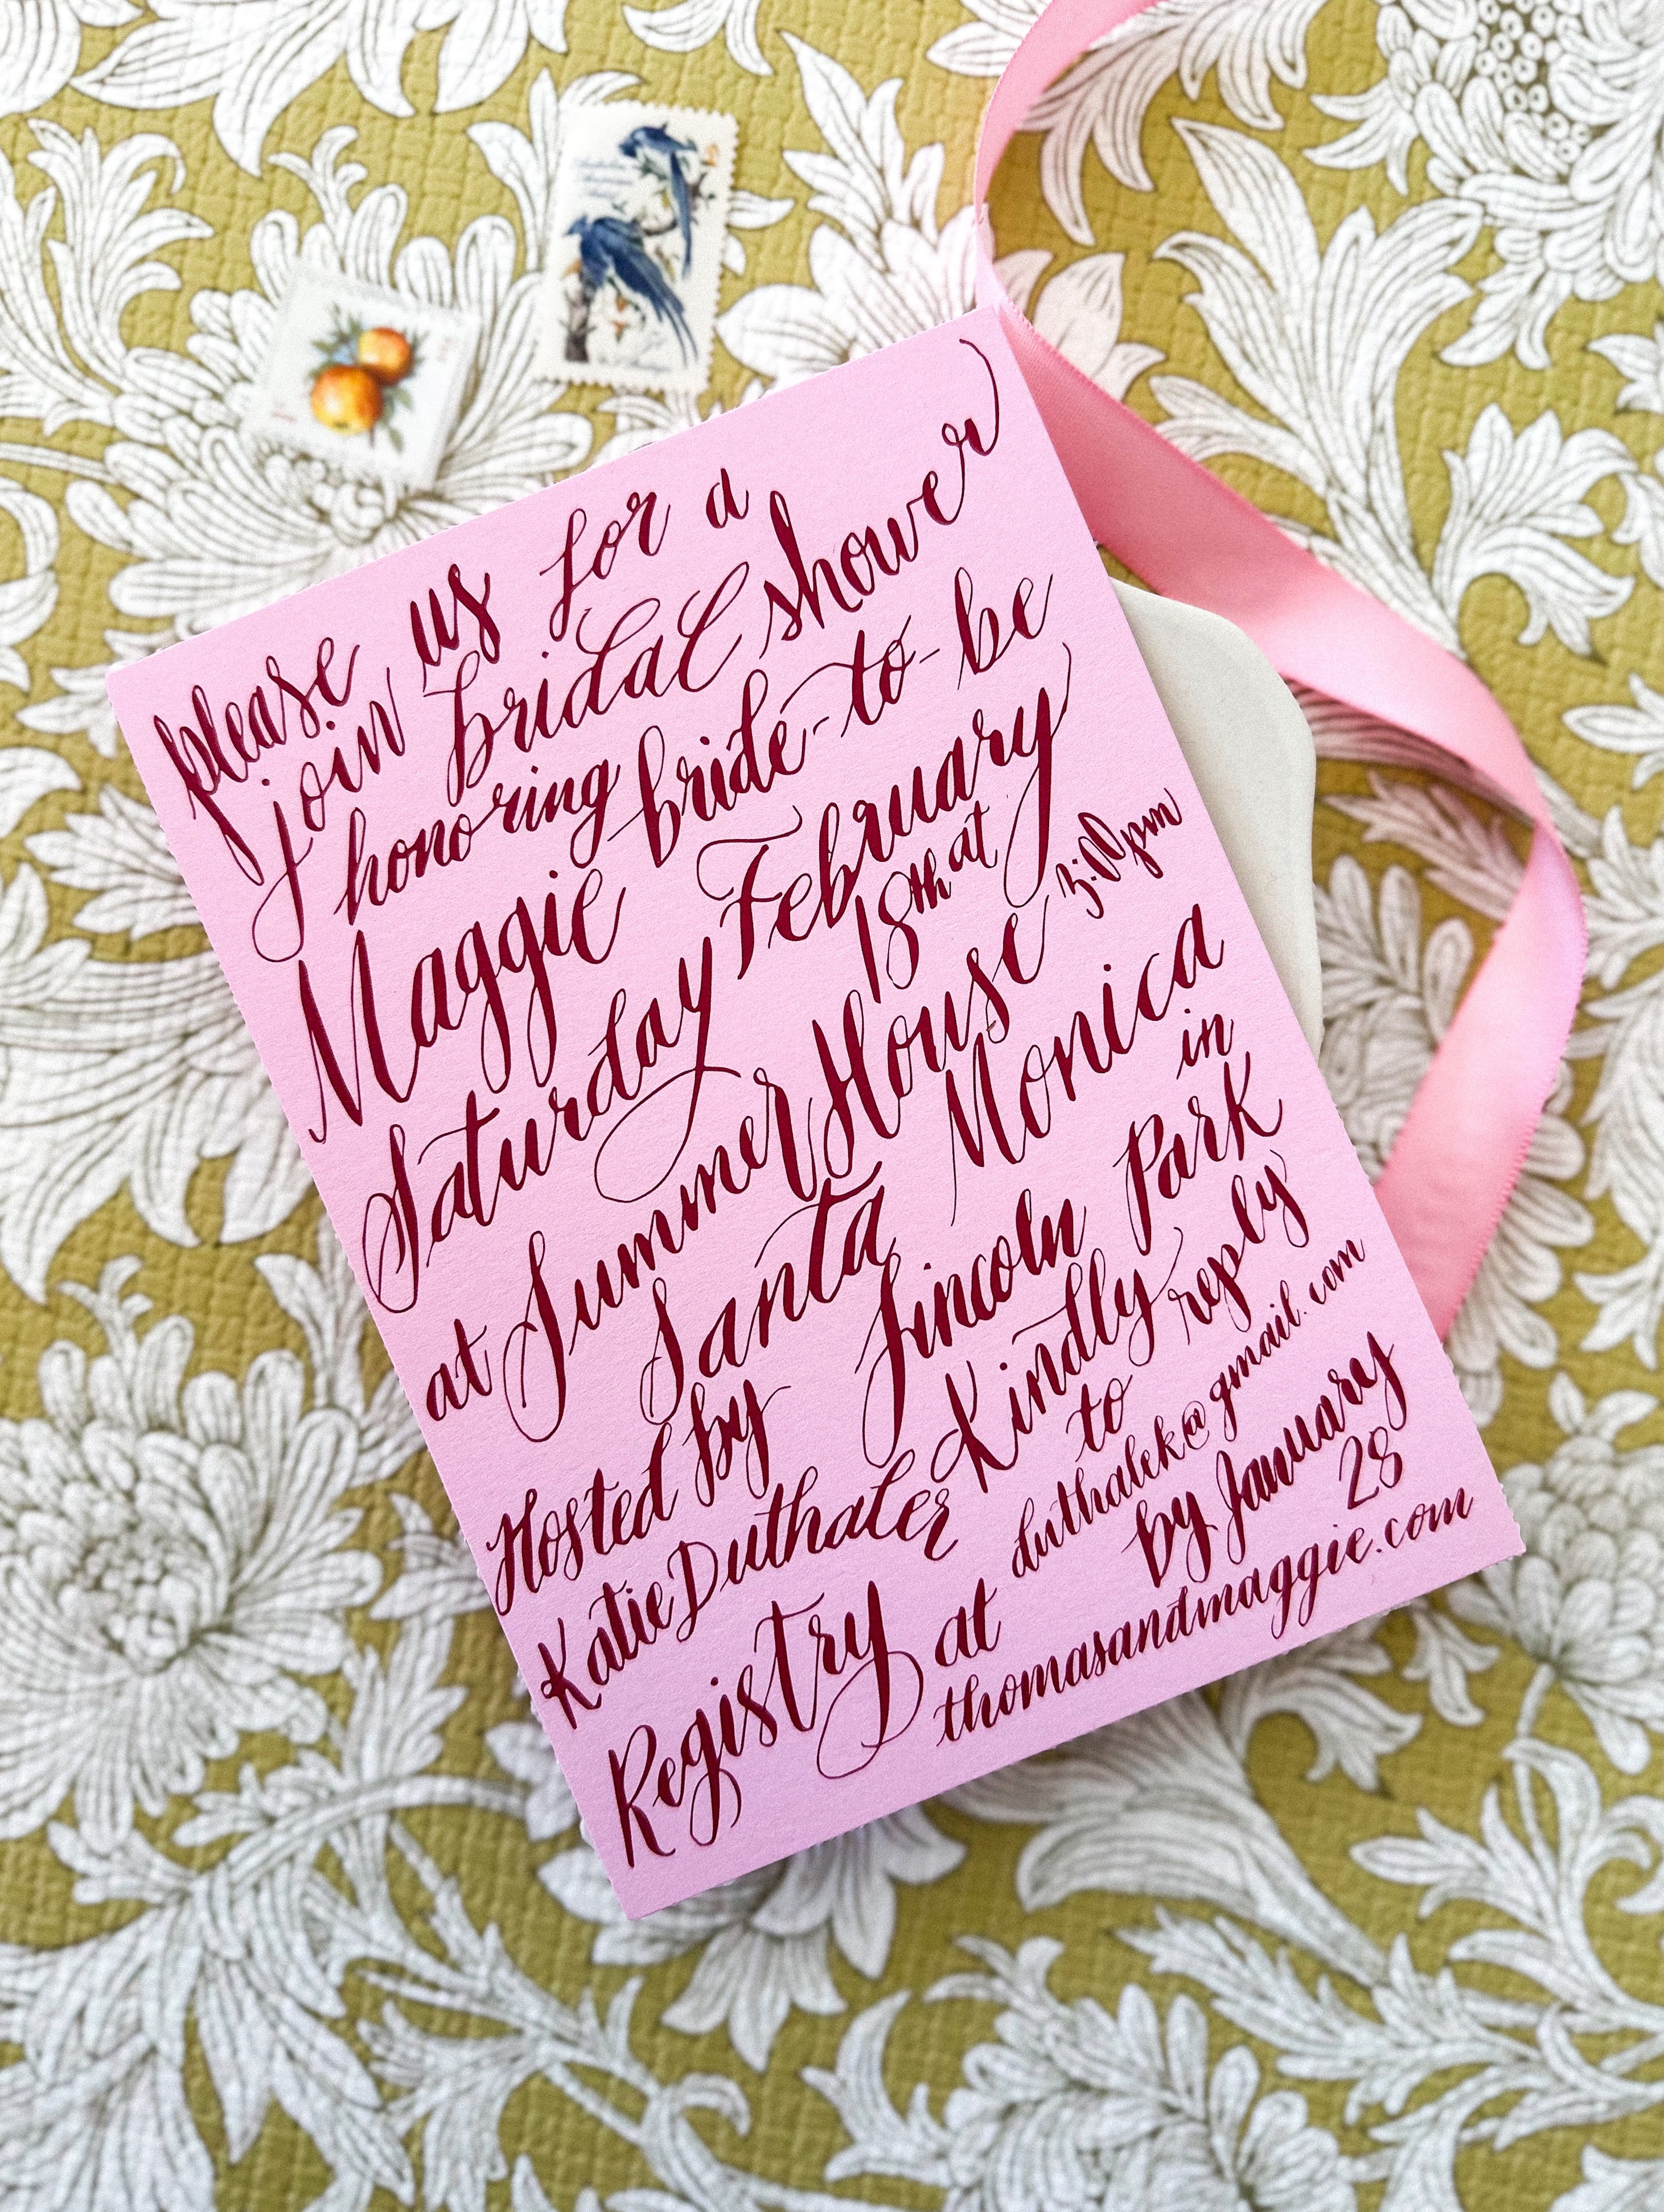 please us for a
join bridal shower
honoring bride-to-be
Maggie February
Saturday 18th at 3:00pm
at Summer House
Santa Monica
in
Hosted by Lincoln Park
Katie Duthaler Kindly reply
to
duthalek@gmail.com
by January
28
Registry at
thomasandmaggie.com